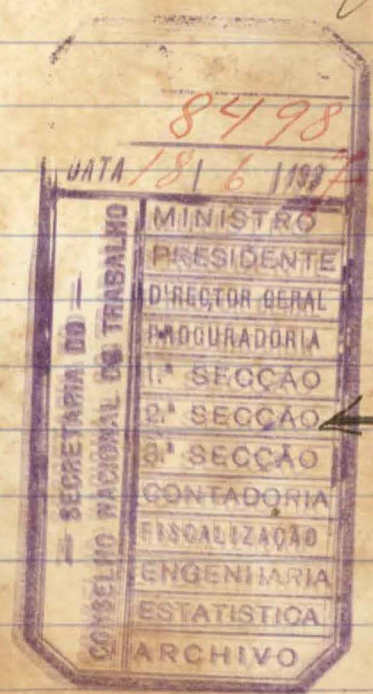 8498
DATA 18 | 6 | 1937
— SECRETARIA DO —
CONSELHO NACIONAL DO TRABALHO
MINISTRO
PRESIDENTE
DIRECTOR GERAL
PROCURADORIA
1.ª SECÇÃO
2.ª SECÇÃO
3.ª SECÇÃO
CONTADORIA
FISCALIZAÇÃO
ENGENHARIA
ESTATISTICA
ARCHIVO